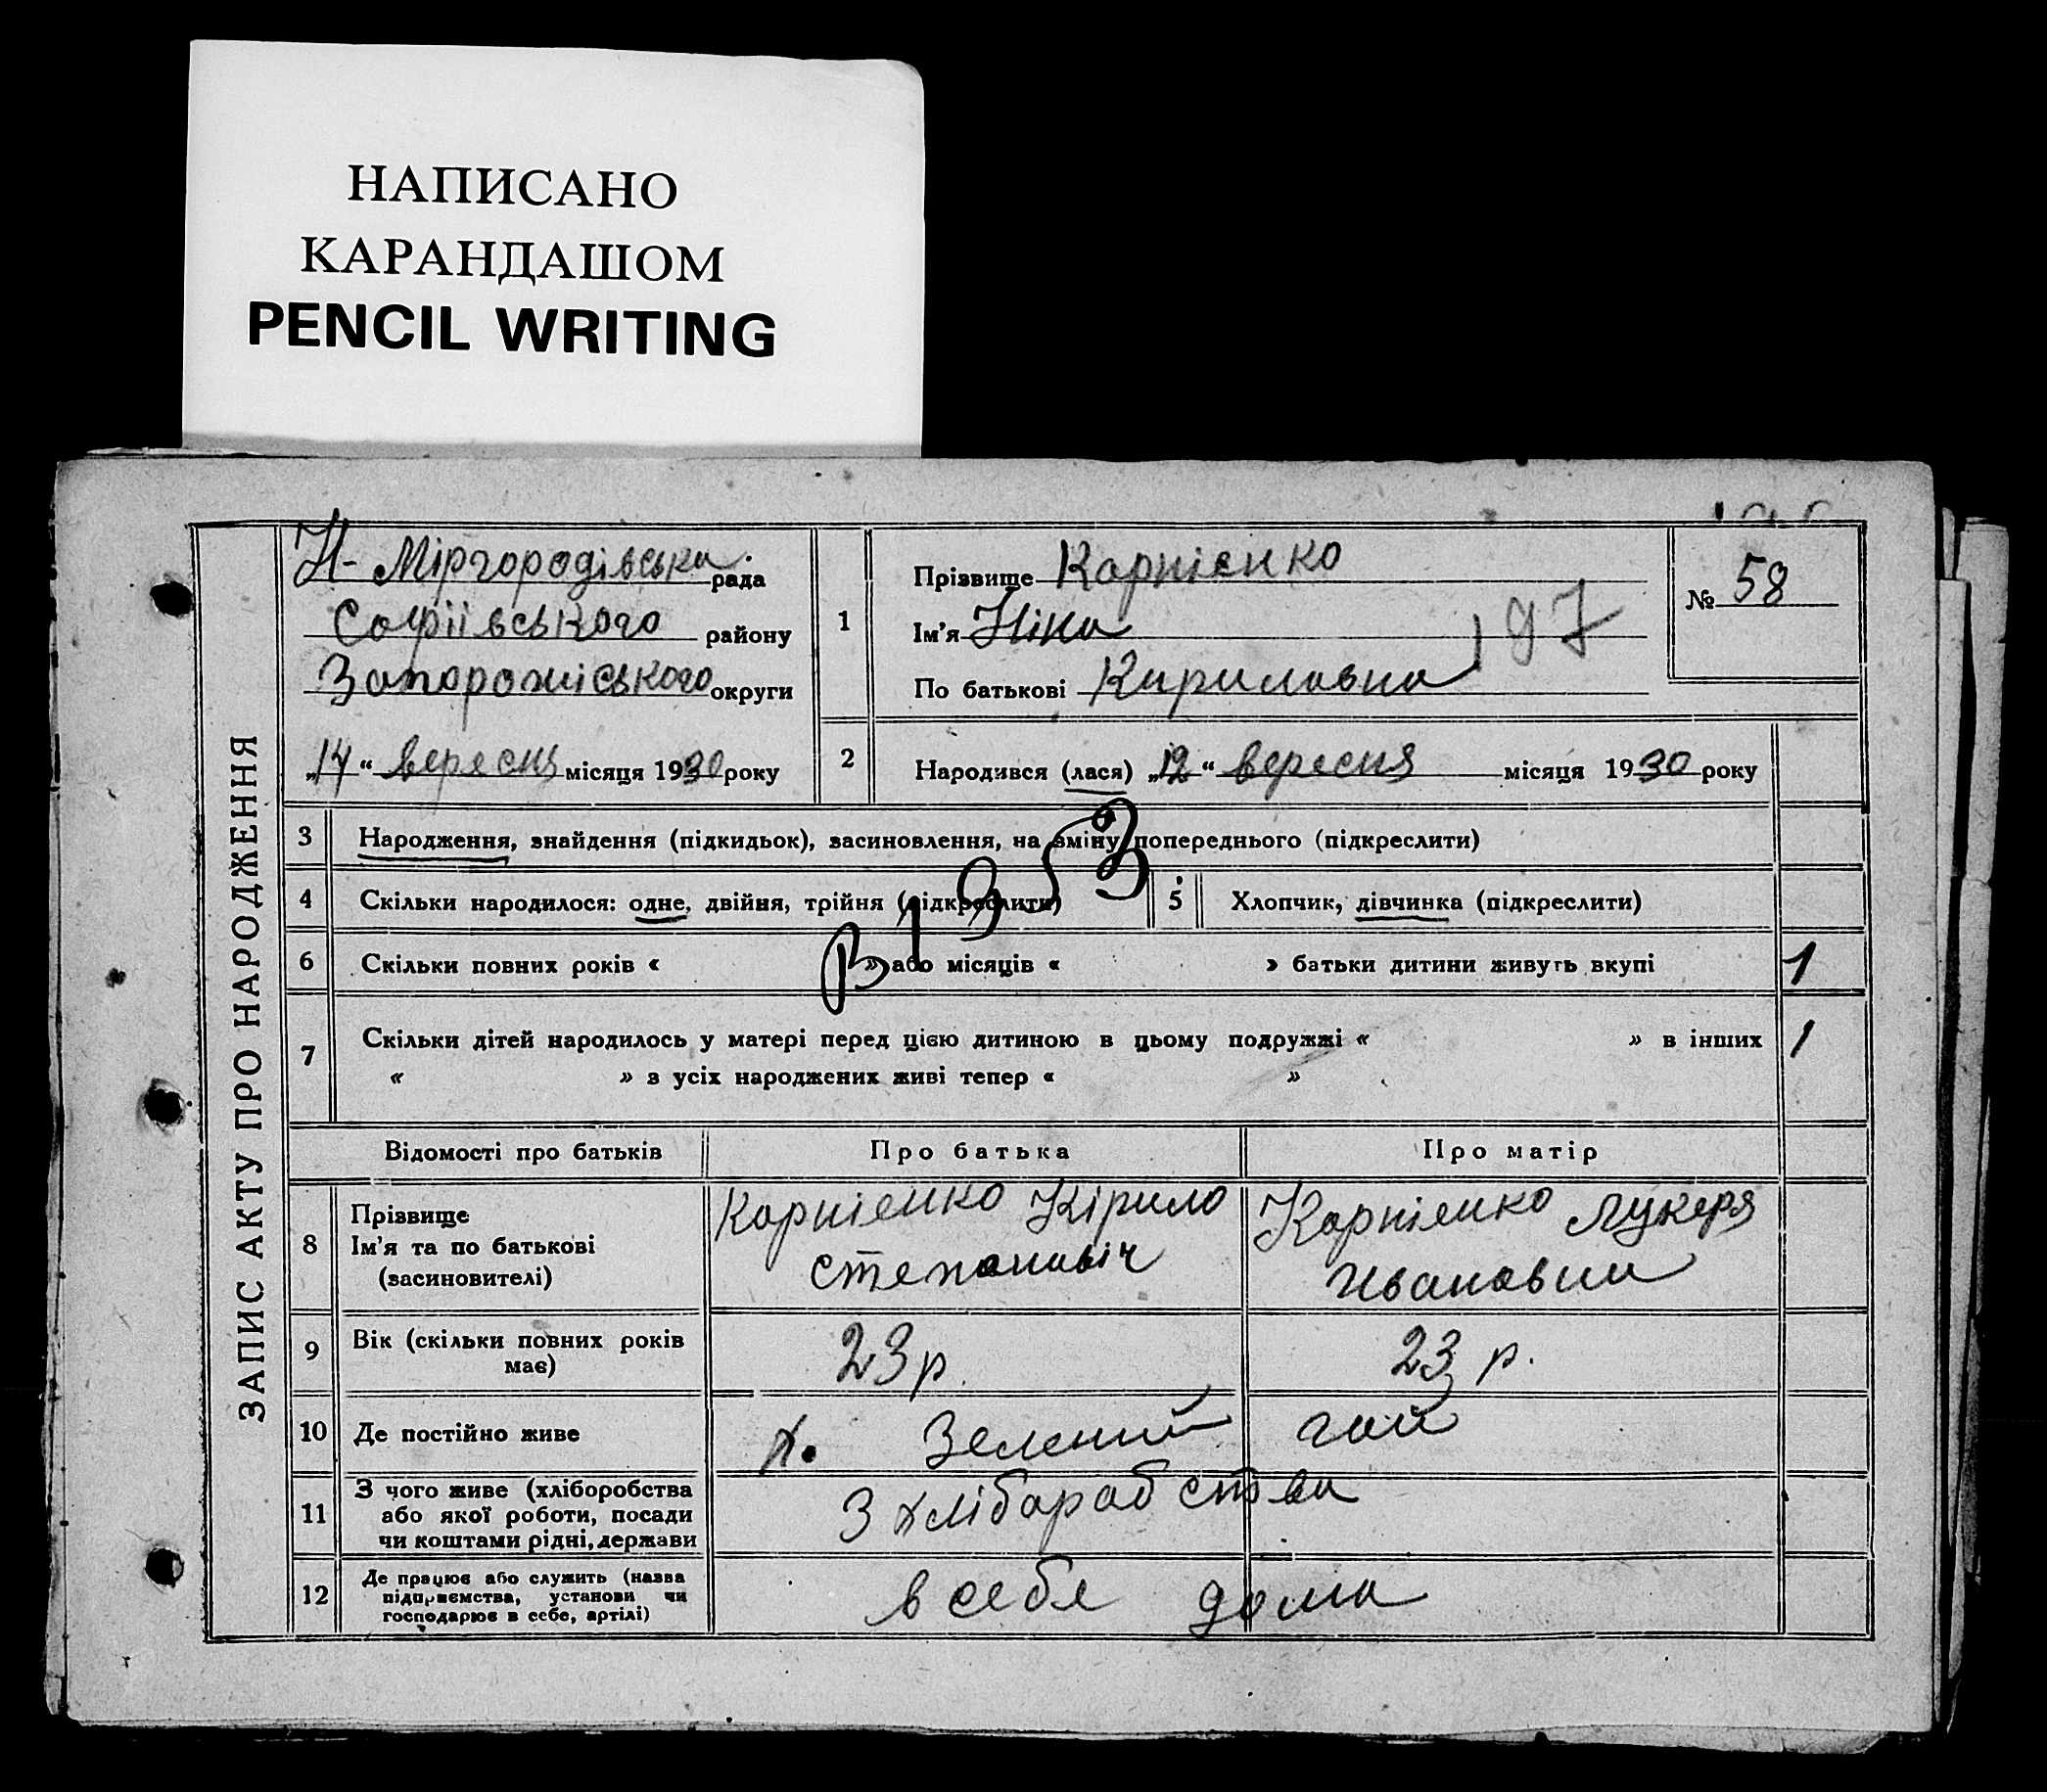 НАПИСАНО
КАРАНДАШОМ
PENCIL WRITING
ЗАПИС АКТУ ПРО НАРОДЖЕННЯ
Н-Міргородівська рада
Софіївського району
Запорожіського округи
„14“ вересня місяця 1930 року
1
Прізвище Карпієнко
Ім'я Ніна
По батькові Кириловна
197
№ 58
2
Народився (лася) „12“ вересня місяця 1930 року
3 Народження, знайдення (підкидьок), засиновлення, на зміну попереднього (підкреслити)
4 Скільки народилося: одне, двійня, трійня (підкреслити)
5 Хлопчик, дівчинка (підкреслити)
6 Скільки повних років « » або місяців « » батьки дитини живуть вкупі 1
7 Скільки дітей народилось у матері перед цією дитиною в цьому подружжі « » в інших 1
« » з усіх народжених живі тепер « »
Відомості про батьків Про батька Про матір
8 Прізвище
Ім'я та по батькові
(засиновителі)
Карпієнко Кірило
Степановіч
Карпієнко Лукеря
Ивановна
9 Вік (скільки повних років
має)
23 р. 23 р.
10 Де постійно живе х. Зелений гай
11 З чого живе (хліборобства
або якої роботи, посади
чи коштами рідні, держави
З хлібарабства
12 Де працює або служить (назва
підприємства, установи чи
господарює в себе, артілі)
в себе дома